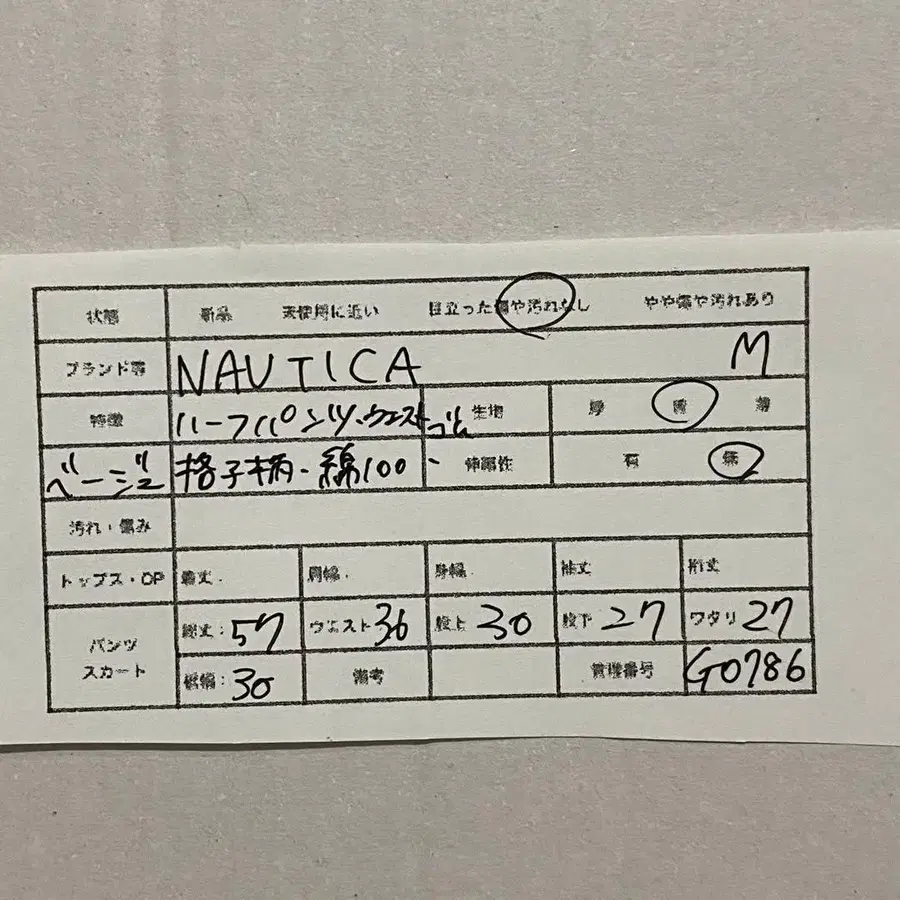 状態 新品 未使用に近い 目立った傷や汚れなし やや傷や汚れあり
ブランド等 NAUTICA M
特徴 ハーフパンツ・ウエストゴム 生地 厚 普 薄
ベージュ 格子柄・綿100 伸縮性 有 無
汚れ・傷み
トップス・OP 着丈. 肩幅. 身幅. 袖丈 裄丈
パンツ 総丈:57 ウエスト36 股上30 股下27 ワタリ27
スカート 裾幅:30 備考 管理番号 G0786